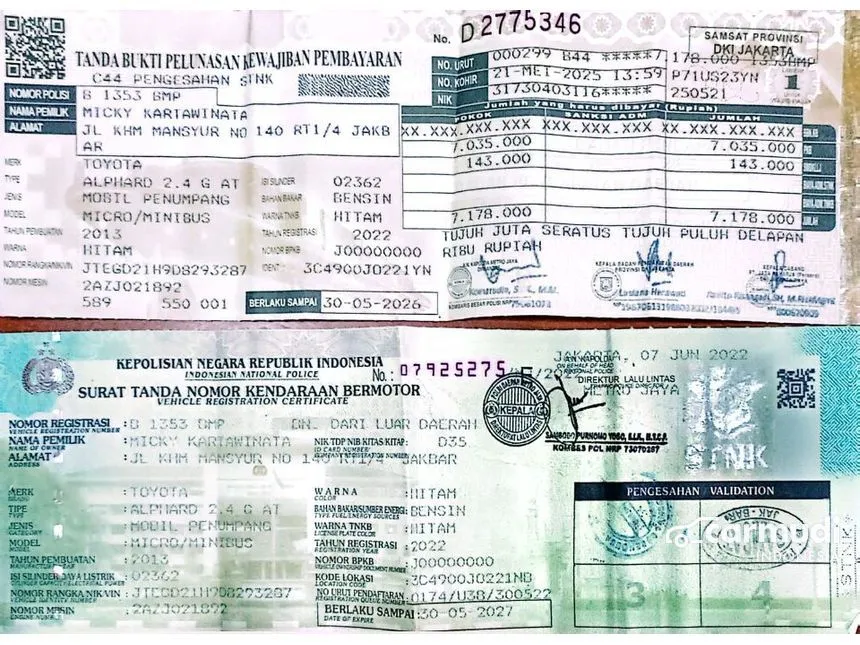 No. D 2775346
SAMSAT PROVINSI
DKI JAKARTA
TANDA BUKTI PELUNASAN KEWAJIBAN PEMBAYARAN
C44 PENGESAHAN STNK
NO. URUT 000299 B44 *****7.178.000 1353BMP
NO. KOHIR 21-MEI-2025 13:59 P71US23YN
NIK 31730403116***** 250521
1
NOMOR POLISI B 1353 BMP
NAMA PEMILIK MICKY KARTAWINATA
ALAMAT JL KHM MANSYUR NO 140 RT1/4 JAKB
AR
Jumlah yang harus dibayar (Rupiah)
POKOK SANKSI ADM JUMLAH
XX.XXX.XXX.XXX XX.XXX.XXX.XXX XX.XXX.XXX.XXX
7.035.000 7.035.000
143.000 143.000
7.178.000 7.178.000 JUMLAH
TUJUH JUTA SERATUS TUJUH PULUH DELAPAN
RIBU RUPIAH
MERK TOYOTA
TYPE ALPHARD 2.4 G AT ISI SILINDER 02362
JENIS MOBIL PENUMPANG BAHAN BAKAR BENSIN
MODEL MICRO/MINIBUS WARNA TNKB HITAM
TAHUN PEMBUATAN 2013 TAHUN REGISTRASI 2022
WARNA HITAM NOMOR BPKB J00000000
NOMOR RANGKA/NIK/VIN JTEGD21H9D8293287 IDENT 3C4900J0221YN
NOMOR MESIN 2AZJ021892
589 550 001 BERLAKU SAMPAI 30-05-2026
KEPOLISIAN NEGARA REPUBLIK INDONESIA
INDONESIAN NATIONAL POLICE
No.: 07925275
SURAT TANDA NOMOR KENDARAAN BERMOTOR
VEHICLE REGISTRATION CERTIFICATE
JAKARTA, 07 JUN 2022
A.N. KAPOLDA
ON BEHALF OF HEAD
DIREKTUR LALU LINTAS
METRO JAYA
KEPALA
SAMBODO PURNOMO YOGO, S.I.K., M.T.C.P.
KOMBES POL NRP 73070287
STNK
NOMOR REGISTRASI : B 1353 BMP BN. DARI LUAR DAERAH
VEHICLE REGISTRATION NUMBER
NAMA PEMILIK : MICKY KARTAWINATA NIK/TDP/NIB/KITAS/KITAP : D35
NAME OF OWNER ID CARD NUMBER/
ALAMAT : JL KHM MANSYUR NO 140 RT1/4 JAKBAR
ADDRESS
MERK : TOYOTA WARNA : HITAM
BRAND COLOR
TIPE : ALPHARD 2.4 G AT BAHAN BAKAR/SUMBER ENERGI : BENSIN
TYPE TYPE FUEL/ENERGY SOURCES
JENIS : MOBIL PENUMPANG WARNA TNKB : HITAM
CATEGORY LICENSE PLATE COLOR
MODEL : MICRO/MINIBUS TAHUN REGISTRASI : 2022
MODEL REGISTRATION YEAR
TAHUN PEMBUATAN : 2013 NOMOR BPKB : J00000000
MANUFACTURE YEAR VEHICLE OWNERSHIP DOCUMENT NUMBER
ISI SILINDER/DAYA LISTRIK : 02362 KODE LOKASI : 3C4900J0221NB
CYLINDER CAPACITY/ELECTRICAL POWER LOCATION CODE
NOMOR RANGKA/NIK/VIN : JTEGD21H9D8293287 NO URUT PENDAFTARAN : 0174/U38/300522
VEHICLE IDENTITY NUMBER REGISTRATION QUEUE NUMBER
NOMOR MESIN : 2AZJ021892 BERLAKU SAMPAI : 30-05-2027
ENGINE NUMBER DATE OF EXPIRE
PENGESAHAN / VALIDATION
JAK - BAR
3 4
STNK
carmudi
INDONESIA